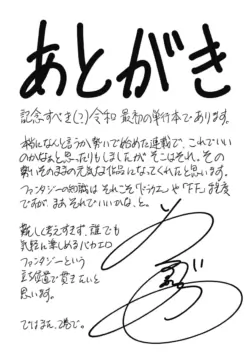 あとがき
記念すべき(?)令和最初の単行本であります。
本当になんと言うか勢いで始めた連載で、これでいい
のかなぁと思ったりもしましたが そこはそれ。その
勢いそのままの元気な作品になってくれたと思います。
ファンタジーの知識は それこそ「ドラクエ」や「FF」程度
ですが、まぁそれでいいかな、と。
難しく考えすぎず、誰でも
気軽に楽しめるバカエロ
ファンタジーという
立ち位置で貫きたいと
思います。
ではまた、2巻で。